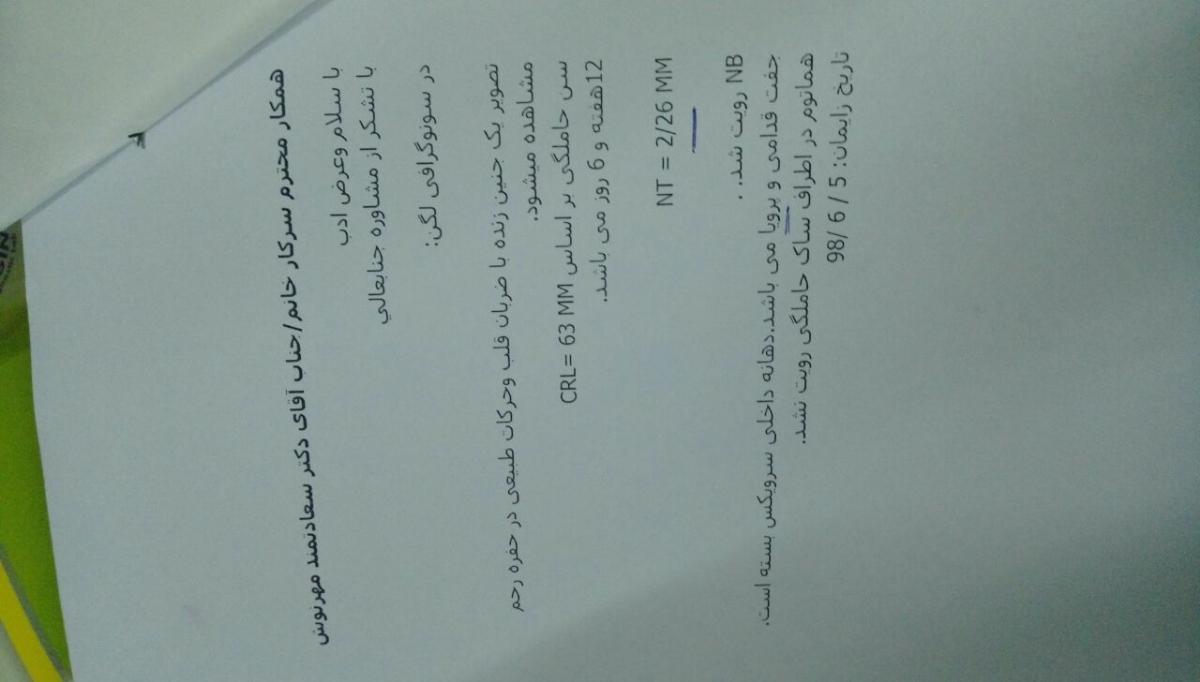 همکار محترم سرکار خانم/جناب آقای دکتر سعادتمند مهرنوش
با سلام وعرض ادب
با تشکر از مشاوره جنابعالي
در سونوگرافی لگن:
تصویر یک جنین زنده با ضربان قلب وحرکات طبیعی در حفره رحم
مشاهده میشود.
سن حاملگی بر اساس CRL= 63 MM
12هفته و 6 روز می باشد.
NT = 2/26 MM
NB رویت شد. .
جفت قدامی و پرویا می باشد.دهانه داخلی سرویکس بسته است.
هماتوم در اطراف ساک حاملگی رویت نشد.
تاریخ زایمان: 5 / 6 /98